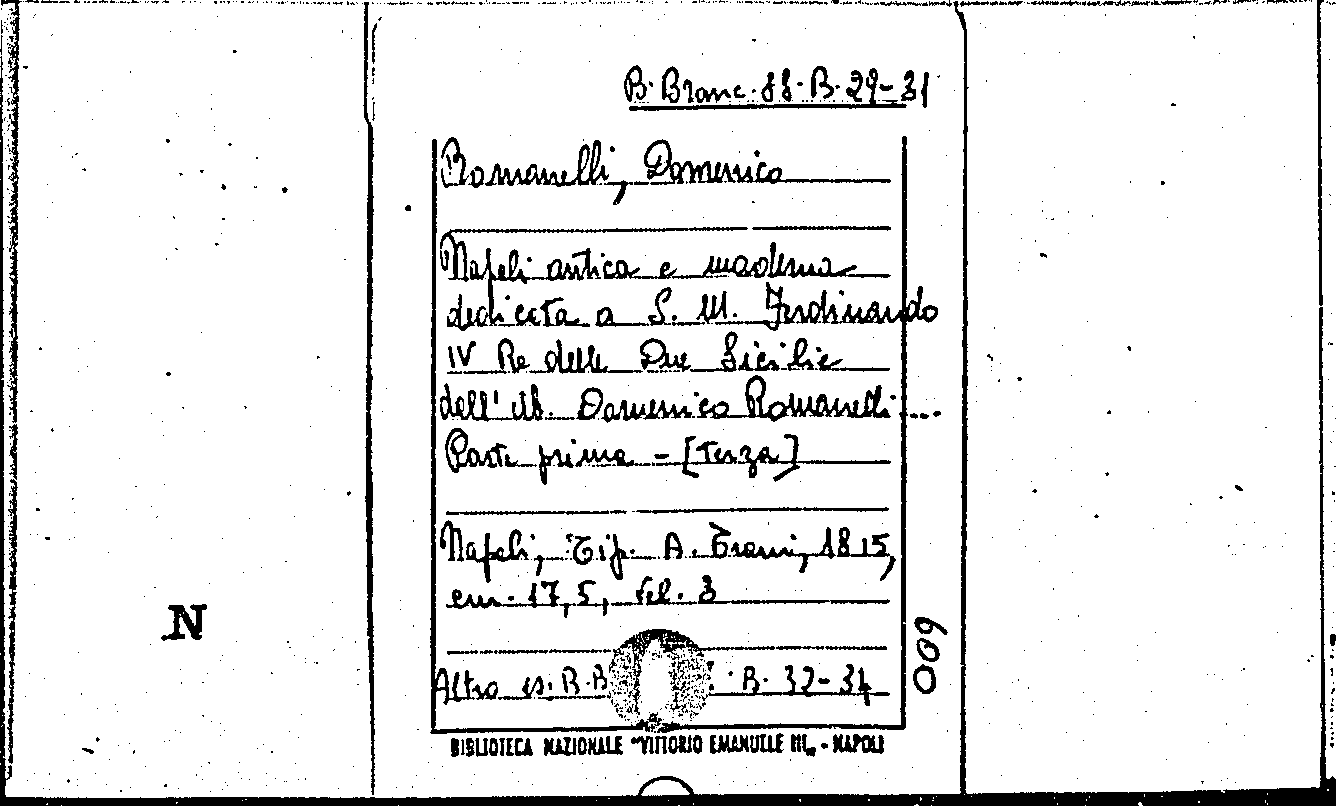 B. Branc. 88. B. 29-31
Romanelli, Domenico
Napoli antica e moderna
dedicata a S. M. Ferdinando
IV Re delle Due Sicilie
dell' Ab. Domenico Romanelli ...
Parte prima - [terza]
Napoli, Tip. A. Trani, 1815,
cm. 17,5, vol. 3
Altro es: B. B B. 32-34
009
N
BIBLIOTECA NAZIONALE "VITTORIO EMANUELE III" - NAPOLI